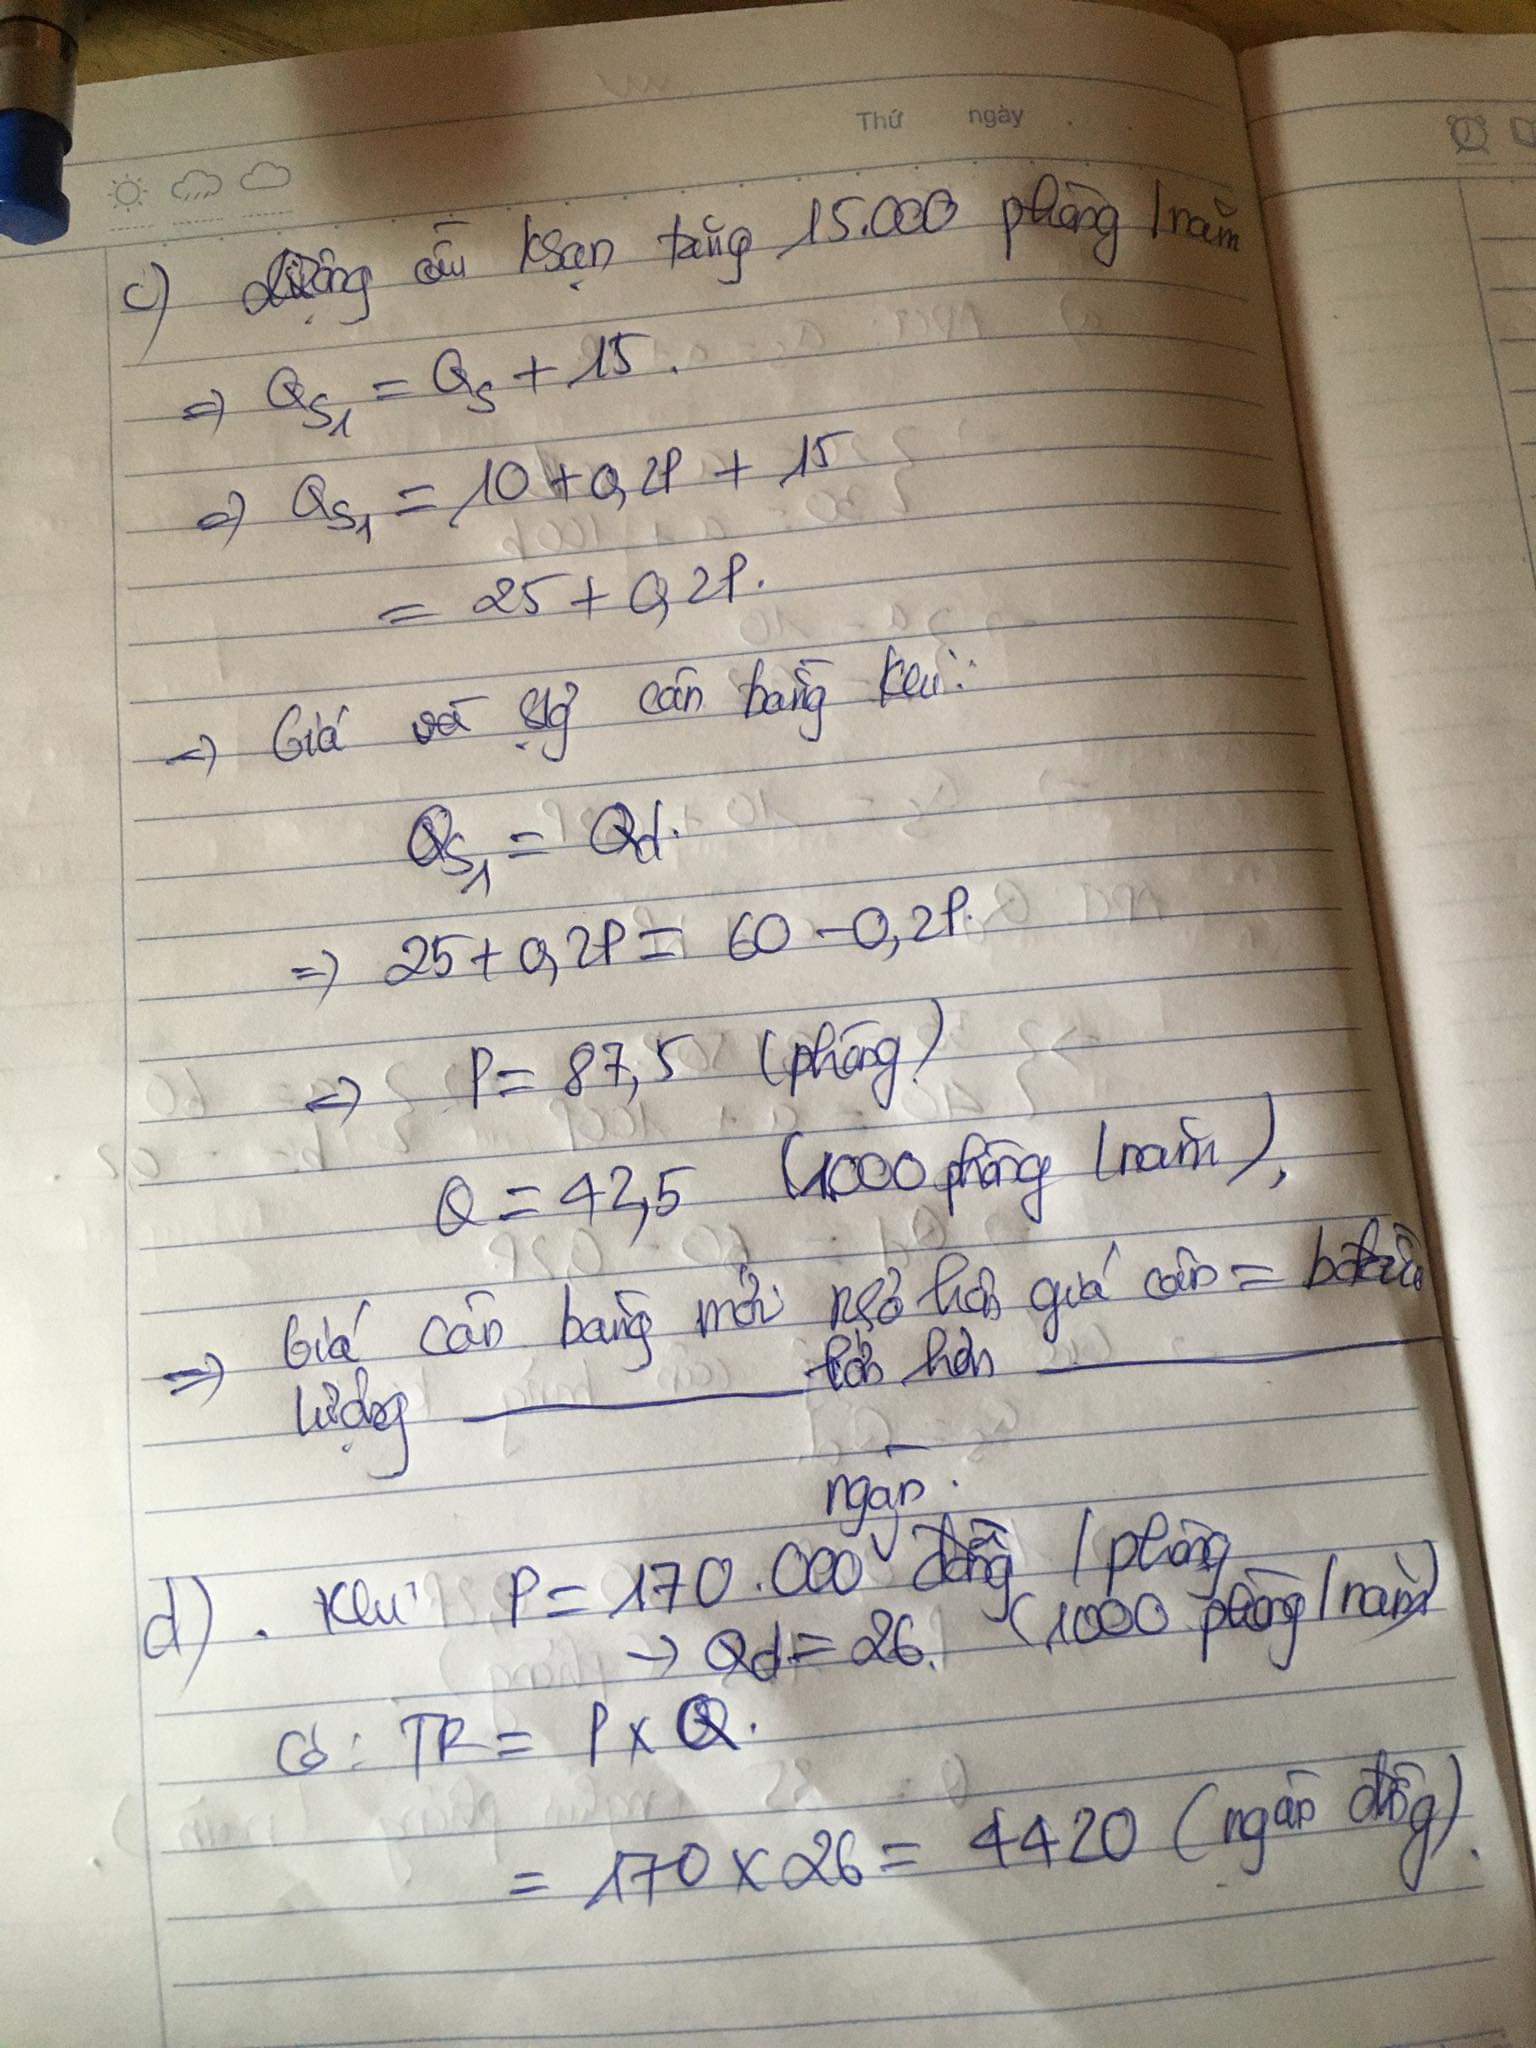 Thứ ngày
c) lượng cầu ksạn tăng 15.000 phòng / năm
=> QS1 = QS + 15.
=> QS1 = 10 + 0,2P + 15
= 25 + 0,2P.
-> Giá và slg cân bằng khi:
QS1 = Qd.
=> 25 + 0,2P = 60 - 0,2P.
=> P = 87,5 (phòng)
Q = 42,5 (1000 phòng / năm),
=> Giá cân bằng mới nhỏ hơn giá cân =
lượng ______ lớn hơn ______
ngàn.
d). Khi P = 170.000 đồng / phòng
-> Qd = 26. (1000 phòng / năm)
Có: TR = P x Q.
= 170 x 26 = 4420 (ngàn đồng).